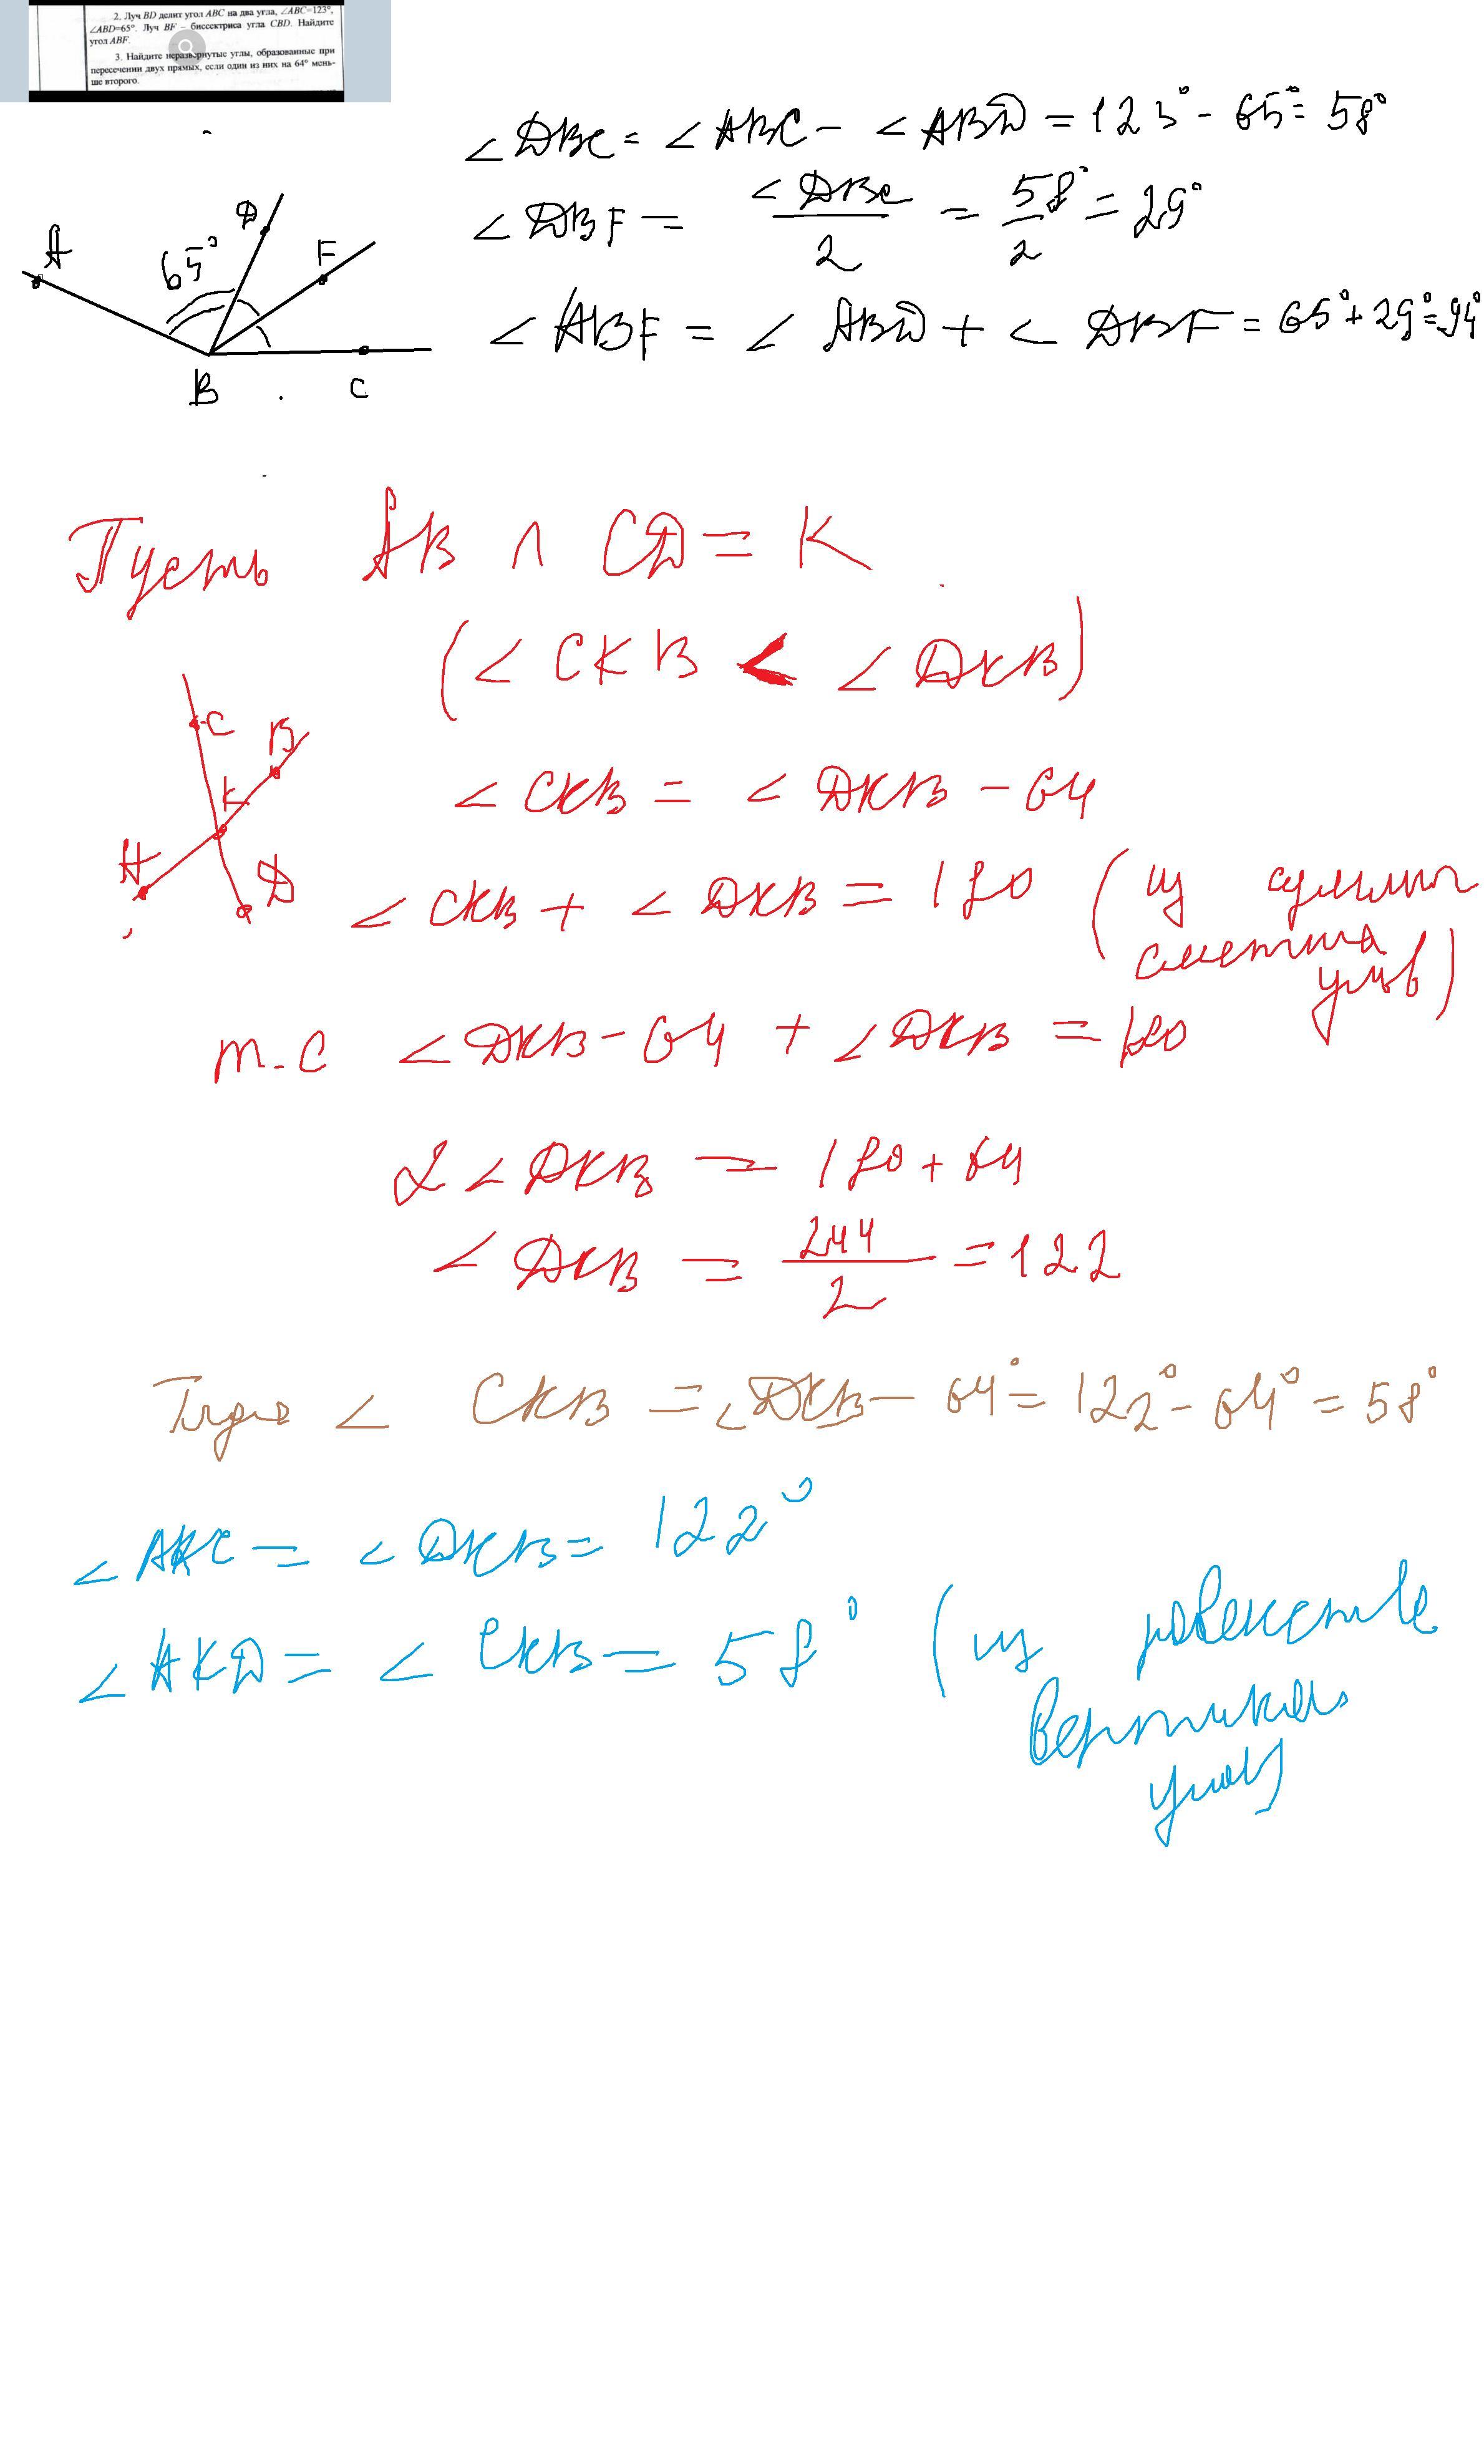 2. Луч BD делит угол ABC на два угла, ∠ABC=123°,
∠ABD=65°. Луч BF – биссектриса угла CBD. Найдите
угол ABF.
3. Найдите неразвёрнутые углы, образованные при
пересечении двух прямых, если один из них на 64° мень-
ше второго.
∠DBC = ∠ABC - ∠ABD = 123° - 65° = 58°
∠DBF = ∠DBC/2 = 58°/2 = 29°
∠ABF = ∠ABD + ∠DBF = 65° + 29° = 94°
A
65°
D
F
B
C
Пусть AB ∩ CD = K
(∠CKB < ∠DKB)
C
B
K
A
D
∠CKB = ∠DKB - 64
∠CKB + ∠DKB = 180 (из суммы
смежных
углов)
∠DKB - 64 + ∠DKB = 180
2∠DKB = 180 + 64
∠DKB = 244/2 = 122
Тогда ∠CKB = ∠DKB - 64° = 122° - 64° = 58°
∠AKC = ∠DKB = 122°
∠AKD = ∠CKB = 58° (из равенства
вертикал
углов)